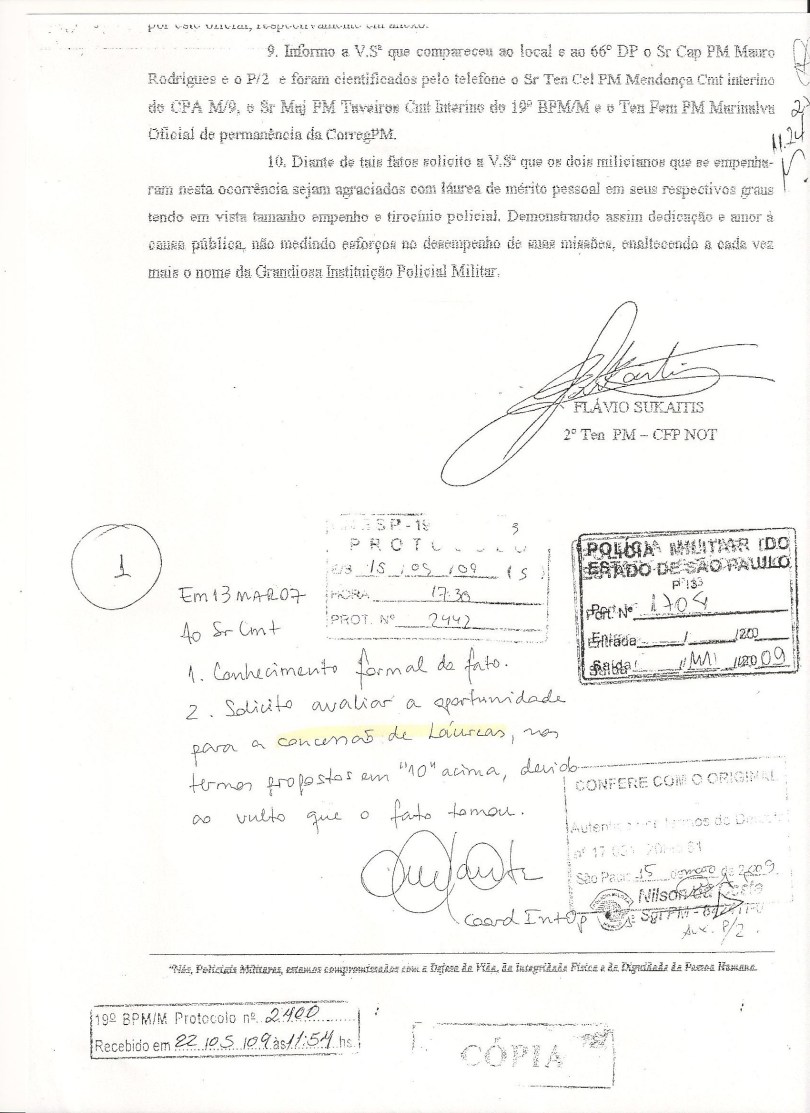 por este oficial, respectivamente em anexo.
9. Informo a V.Sª que compareceu ao local e ao 66º DP o Sr Cap PM Mauro
Rodrigues e o P/2 e foram cientificados pelo telefone o Sr Ten Cel PM Mendonça Cmt interino
do CPA M/9, o Sr Maj PM Taveiros Cmt Interino do 19º BPM/M e o Ten Fem PM Marinalva
Oficial de permanência da CorregPM.
10. Diante de tais fatos solicito a V.Sª que os dois milicianos que se empenha-
ram nesta ocorrência sejam agraciados com láurea de mérito pessoal em seus respectivos graus
tendo em vista tamanho empenho e tirocínio policial. Demonstrando assim dedicação e amor à
causa pública, não medindo esforços no desempenho de suas missões, enaltecendo a cada vez
mais o nome da Grandiosa Instituição Policial Militar.
FLÁVIO SUKAITIS
2º Ten PM – CFP NOT
1
PROT
15 / 05 / 09
HORA 17:30
PROT. Nº 2442
POLÍCIA MILITAR DO
ESTADO DE SÃO PAULO
Port. Nº 1704
Entrada / /200
Saída / /2009
Em 13 MAR 07
Ao Sr Cmt
1. Conhecimento formal do fato.
2. Solicito avaliar a oportunidade
para a concessão de Láureas, nos
termos propostos em "10" acima, devido
ao vulto que o fato tomou.
Coord IntOp
CONFERE COM O ORIGINAL
São Paulo 15 de 2009
Nilson da Costa
Sgt PM
Aux. P/2.
"Nós, Policiais Militares, estamos compromissados com a Defesa da Vida, da Integridade Física e da Dignidade da Pessoa Humana.
19º BPM/M Protocolo nº 2400
Recebido em 22/05/09 às 11:54 hs.
CÓPIA